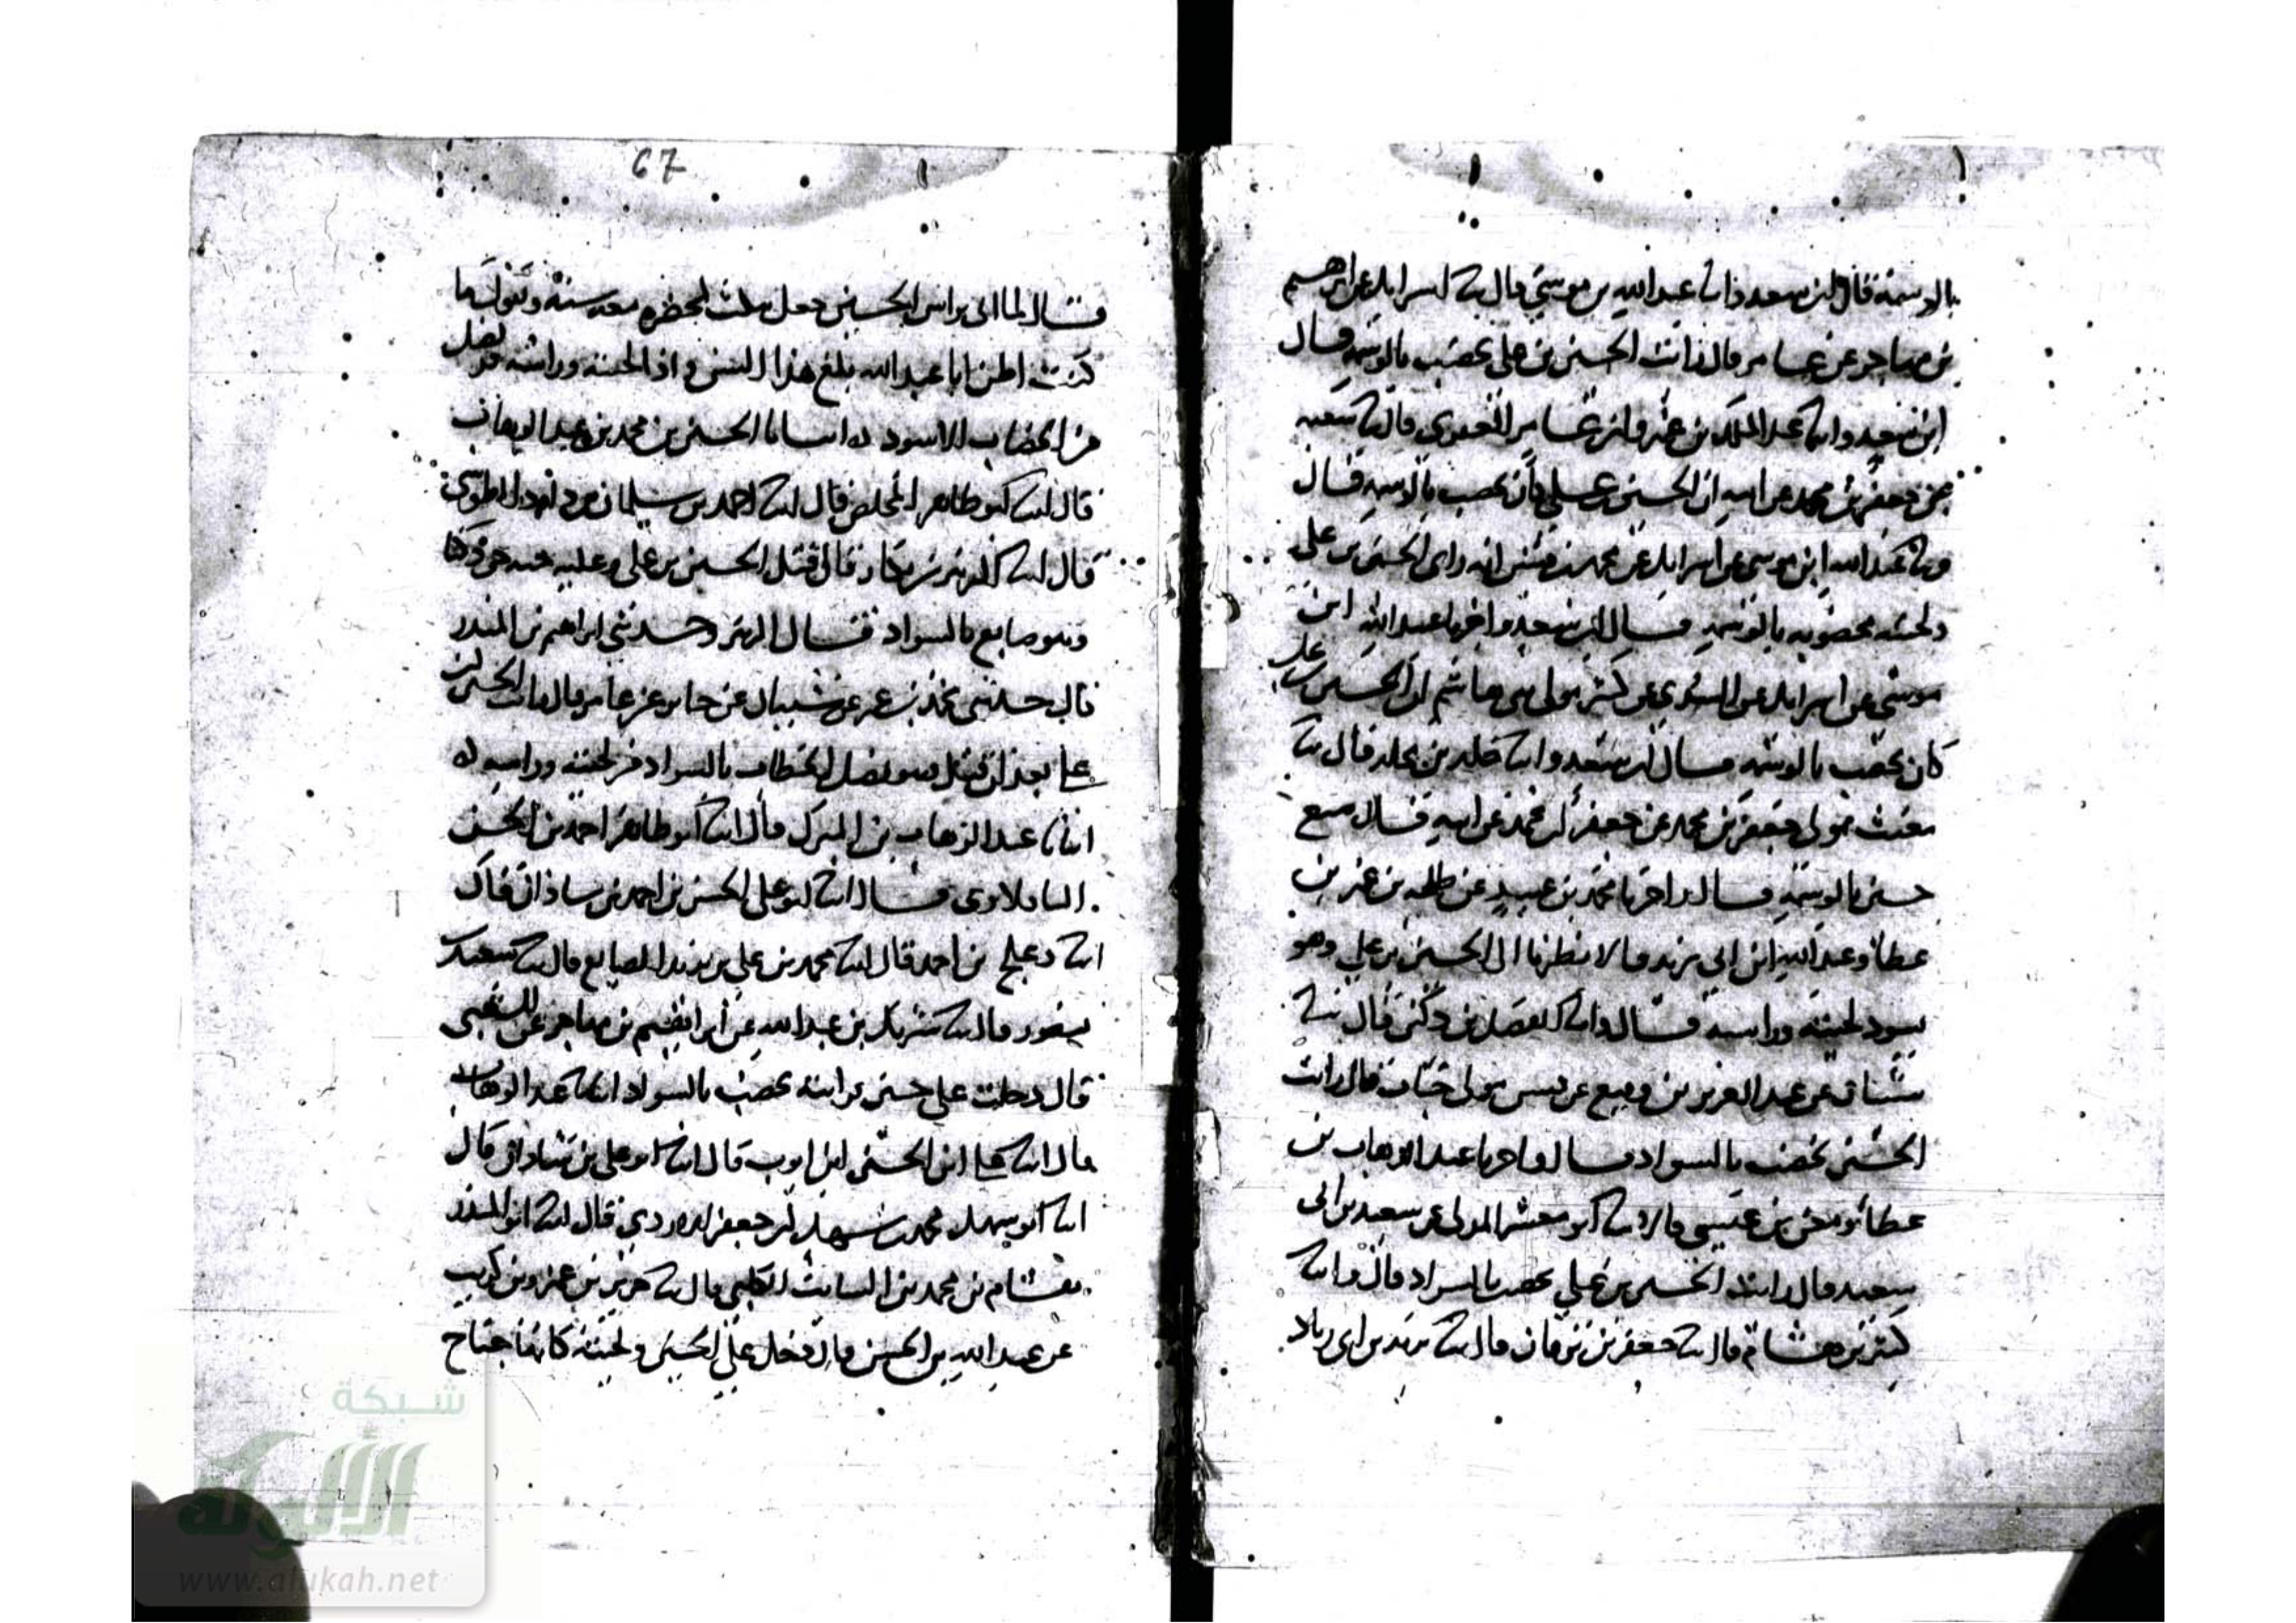 بالوسمة قال ابن سعد وانا عبد الله بن موسى قال ثنا اسرايل عن ابرهيم
بن مهاجر عن عامر قال رايت الحسين بن علي يخضب بالوسمة قال
ابن سعد وانا عبد الملك بن عمرو ابو عامر العقدي قال ثنا
عن جعفر بن محمد عن ابيه ان الحسين بن علي كان يخضب بالوسمة قال
وانا عبد الله ابن موسى عن اسرايل عن محمد بن قيس انه راى الحسين بن على
ولحيته مخضوبه بالوسمه قال ابن سعد واخبرنا عبد الله ابن
موسى عن اسرايل عن السدي عن كثير مولى بنى هاشم ان الحسين بن على
كان يخضب بالوسمه قال ابن سعد وانا خالد بن مخلد قال ثنا
مغيث مولى جعفر بن محمد عن جعفر بن محمد عن ابيه قال صبغ
حسين بالوسمه قال واخبرنا محمد بن عبيد عن طلحه بن عمرو بن
عطا وعبد الله ابن ابي يزيد قالا نظرنا الى الحسين بن علي وهو
يسود لحيته وراسه قال وانا الفضل بن دكين قال ثنا
عن عبد العزيز بن رفيع عن قيس مولى خباب قال رايت
الحسين يخضب بالسواد قال واخبرنا عبد الوهاب بن
عطا ومعن بن عيسى قالا ثنا ابو معشر المدنى عن سعيد بن ابى
سعيد قال رايت الحسين بن علي يخضب بالسواد قال وانا
كثير بن هشام قال ثنا جعفر بن برقان قال ثنا يزيد بن ابى زياد
67
قال لما اتى براس الحسين جعل ينكث بمخصره معه سنه ويقول ما
كنت اظن ابا عبد الله بلغ هذا السن واذا لحيته وراسه قد نصل
من الخضاب الاسود انبانا الحسين بن محمد بن عبد الوهاب
قال انا ابو طاهر المخلص قال انا احمد بن سليمان بن داود الطوسى
قال انا الزبير بن بكار قال قتل الحسين بن علي وعليه جبه خز دكنا
وهو صابغ بالسواد قال الزبير وحدثني ابراهيم بن المنذر
قال حدثنى محمد بن عمر عن شيبان عن جابر عن عامر قال رايت الحسين بن
على بعد ان قتل وهو نصل الخضاب بالسواد من لحيته وراسه
انبانا عبد الوهاب بن المبرك قال انا ابو طاهر احمد بن الحسن
الباقلاوى قال انا ابو على الحسن بن احمد بن شاذان قال
انا دعلج بن احمد قال انا محمد بن علي بن زيد الصايغ قال ثنا سعيد بن
منصور قال ثنا شريك بن عبد الله عن ابراهيم بن مهاجر عن الشعبى
قال دخلت على حسين فرايته يخضب بالسواد انبانا عبد الوهاب
قال انا على ابن الحسين ابن ايوب قال انا ابو علي بن شاذان قال
انا ابو سهل محمد بن قال انا ابو المنذر
هشام بن محمد بن السايب الكلبى قال ثنا
عن عبد الله بن الحسن قال دخل علي الحسين ولحيته كانها جناح
شبكة
الألوكة
www.alukah.net